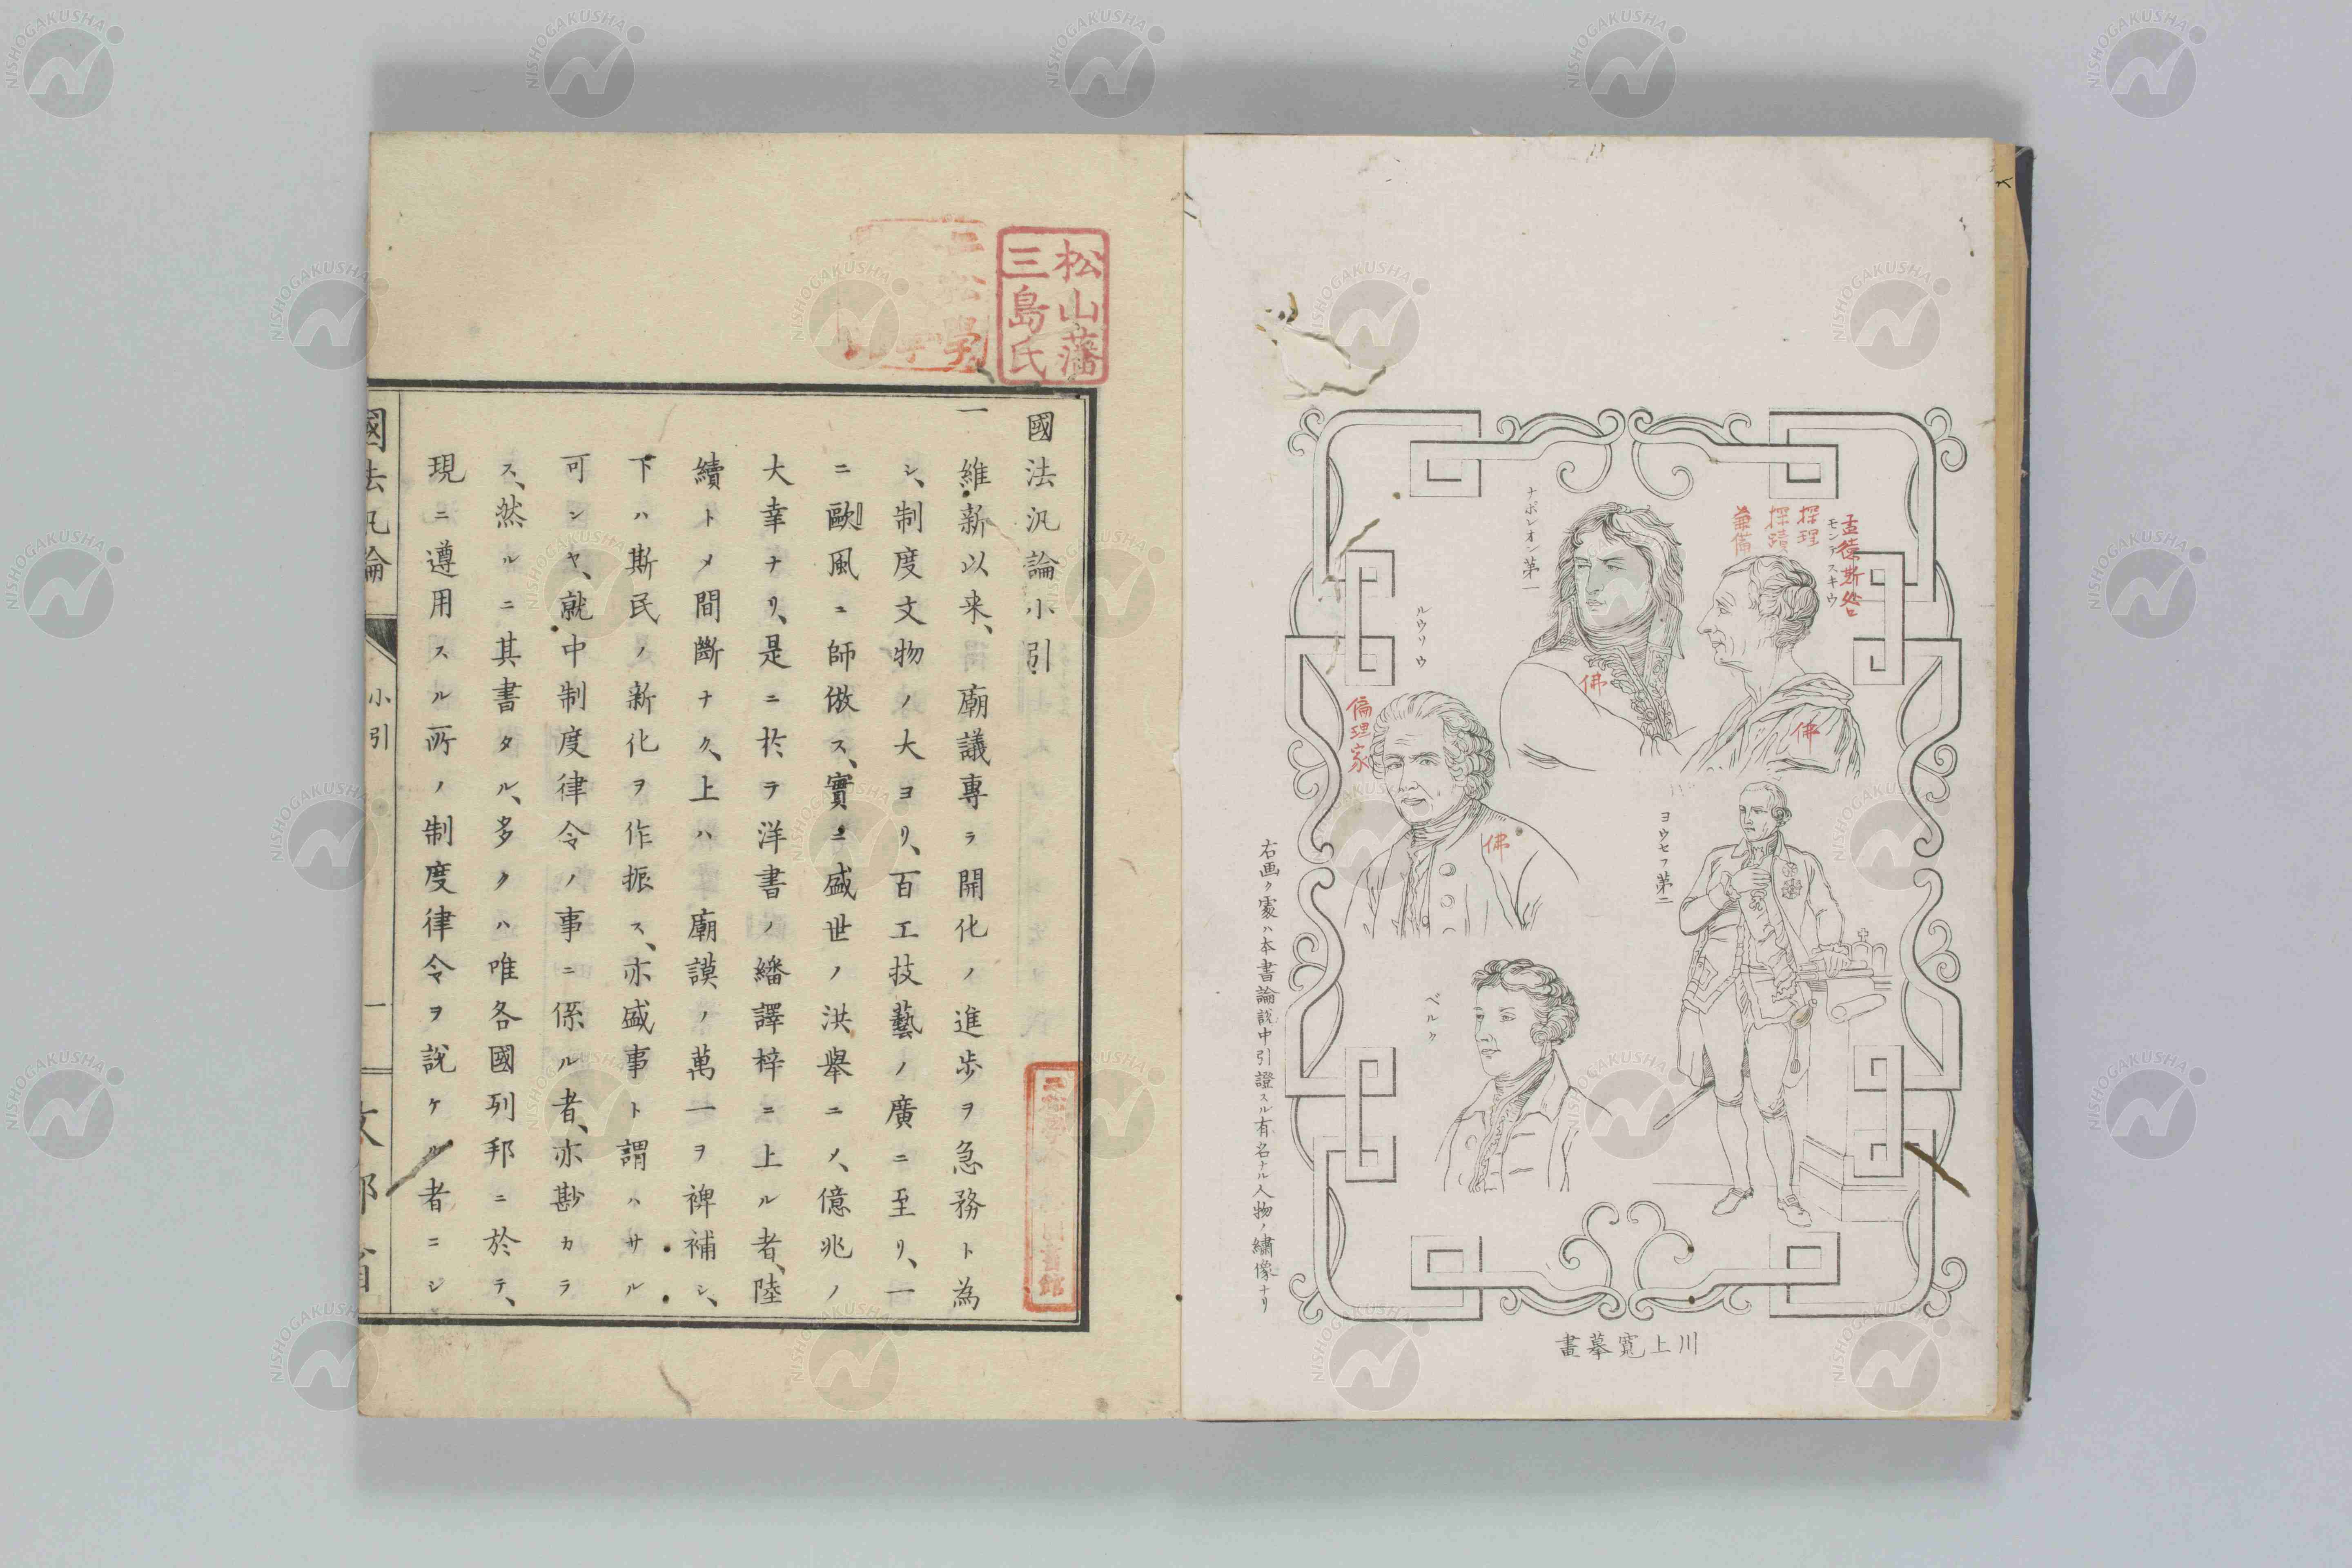 孟德斯咎
モンテスキウ
探理
探賾
兼備
佛
ナポレオン第一
佛
ルウソウ
偏理家
佛
ヨウセフ第二
ベルク
右画ク處ハ本書論說中引證スル有名ナル人物ノ繡像ナリ
川上寬摹畫
松山藩
三島氏
國法汎論小引
一維新以来、廟議專ラ開化ノ進歩ヲ急務ト為
シ、制度文物ノ大ヨリ、百工技藝ノ廣ニ至リ、一
ニ歐風ニ師倣ス、實ニ盛世ノ洪舉ニメ、億兆ノ
大幸ナリ、是ニ於テ洋書ノ繙譯梓ニ上ル者、陸
續トメ間斷ナク、上ハ廟謨ノ萬一ヲ裨補シ、
下ハ斯民ノ新化ヲ作振ス、亦盛事ト謂ハサル
可ンヤ、就中制度律令ノ事ニ係ル者、亦尠カラ
ス、然ルニ其書タル、多クハ唯各國列邦ニ於テ、
現ニ遵用スル所ノ制度律令ヲ說ケル者ニシ
國法汎論
小引
一
文部省
NISHOGAKUSHA